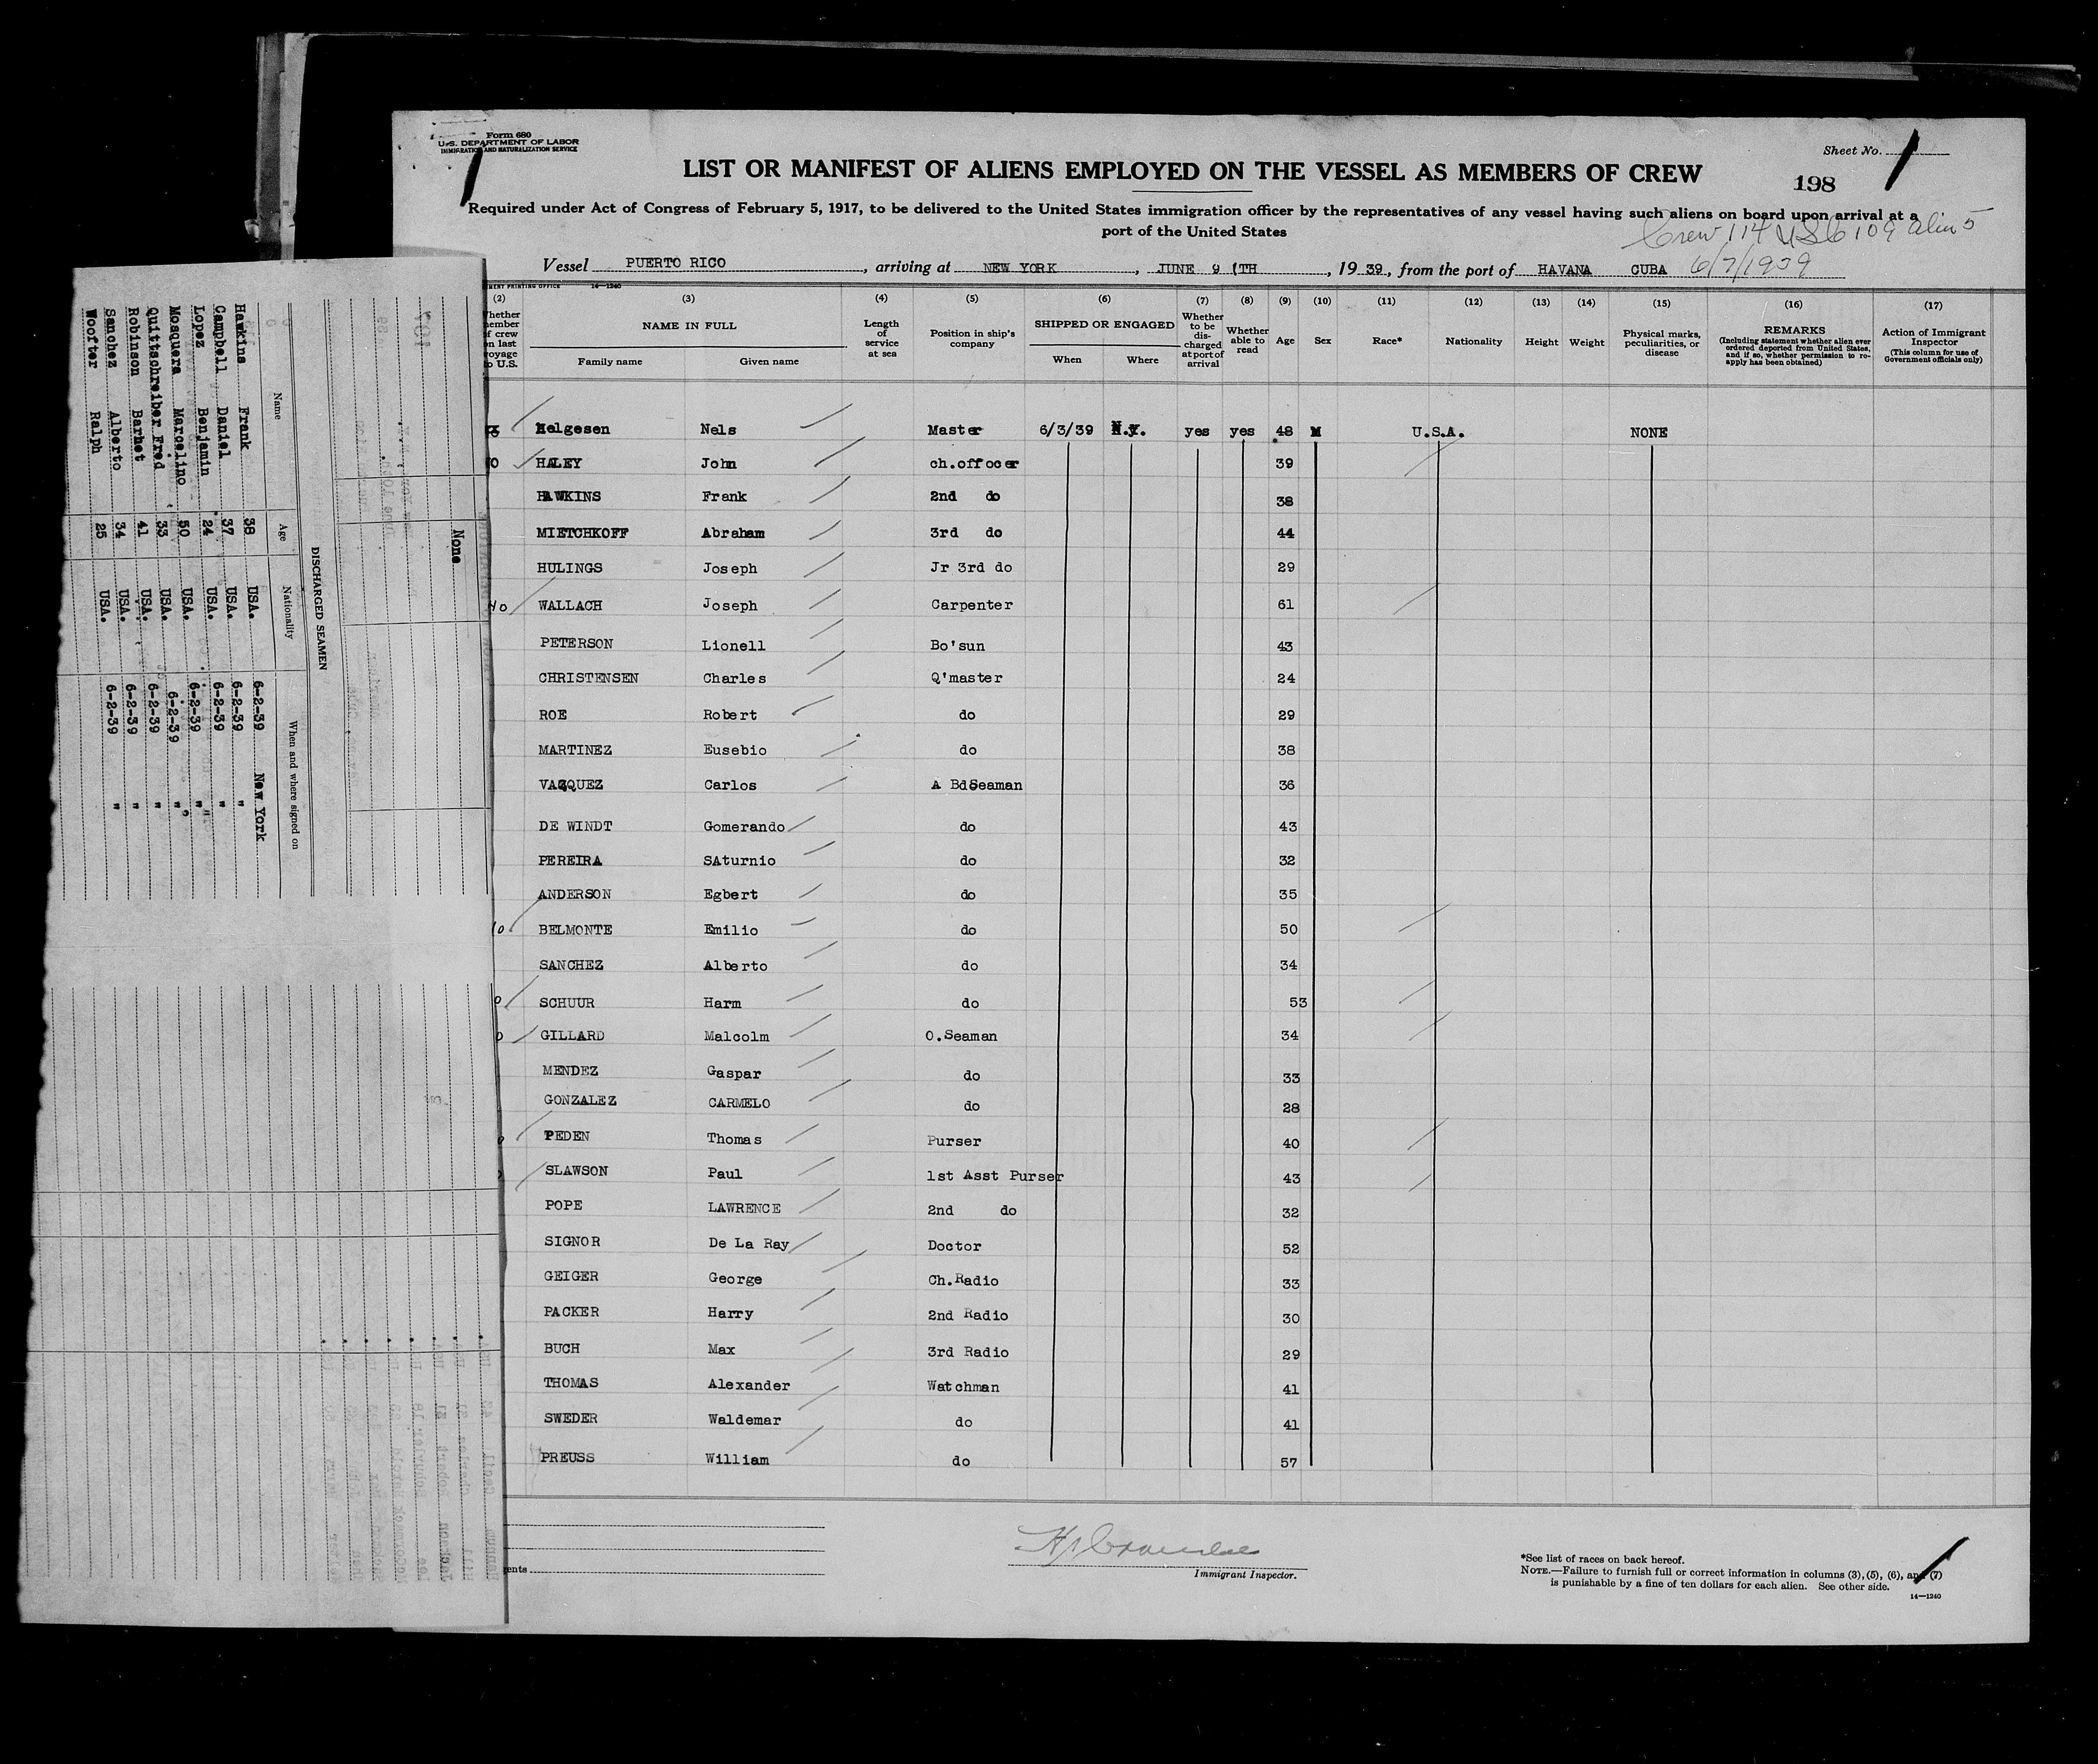 Form 680
U.S. DEPARTMENT OF LABOR
IMMIGRATION AND NATURALIZATION SERVICE
Sheet No. 1
LIST OR MANIFEST OF ALIENS EMPLOYED ON THE VESSEL AS MEMBERS OF CREW
198
Required under Act of Congress of February 5, 1917, to be delivered to the United States immigration officer by the representatives of any vessel having such aliens on board upon arrival at a
port of the United States
Crew 114 USC 109 Alien 5
Vessel PUERTO RICO, arriving at NEW YORK, JUNE 9 TH, 1939, from the port of HAVANA CUBA 6/7/1939
(2) (3) (4) (5) (6) (7) (8) (9) (10) (11) (12) (13) (14) (15) (16) (17)
NAME IN FULL
Family name Given name
Length of service at sea
Position in ship's company
SHIPPED OR ENGAGED
When Where
Whether to be discharged at port of arrival
Whether able to read
Age
Sex
Race*
Nationality
Height
Weight
Physical marks, peculiarities, or disease
REMARKS
(Including statement whether alien ever ordered deported from United States, and if so, whether permission to reapply has been obtained)
Action of Immigrant Inspector
(This column for use of Government officials only)
Helgesen Nels Master 6/3/39 N.Y. yes yes 48 M U.S.A. NONE
HALEY John ch.offocer 39
HAWKINS Frank 2nd do 38
MIETCHKOFF Abraham 3rd do 44
HULINGS Joseph Jr 3rd do 29
WALLACH Joseph Carpenter 61
PETERSON Lionell Bo'sun 43
CHRISTENSEN Charles Q'master 24
ROE Robert do 29
MARTINEZ Eusebio do 38
VAZQUEZ Carlos A BdSeaman 36
DE WINDT Gomerando do 43
PEREIRA SAturnio do 32
ANDERSON Egbert do 35
BELMONTE Emilio do 50
SANCHEZ Alberto do 34
SCHUUR Harm do 53
GILLARD Malcolm O.Seaman 34
MENDEZ Gaspar do 33
GONZALEZ CARMELO do 28
PEDEN Thomas Purser 40
SLAWSON Paul 1st Asst Purser 43
POPE LAWRENCE 2nd do 32
SIGNOR De La Ray Doctor 52
GEIGER George Ch.Radio 33
PACKER Harry 2nd Radio 30
BUCH Max 3rd Radio 29
THOMAS Alexander Watchman 41
SWEDER Waldemar do 41
PREUSS William do 57
Immigrant Inspector.
*See list of races on back hereof.
NOTE.—Failure to furnish full or correct information in columns (3), (5), (6), and (7)
is punishable by a fine of ten dollars for each alien. See other side.
14—1240
None
DISCHARGED SEAMEN
Name Age Nationality When and where signed on
Hawkins Frank 38 USA. 6-2-39 New York
Campbell Daniel 37 USA. 6-2-39 "
Lopez Benjamin 24 USA. 6-2-39 "
Mosquera Marcelino 50 USA. 6-2-39 "
Quittschreiber Fred 33 USA. 6-2-39 "
Robinson Barhet 41 USA. 6-2-39 "
Sanchez Alberto 34 USA. 6-2-39 "
Woofter Ralph 25 USA. 6-2-39 "